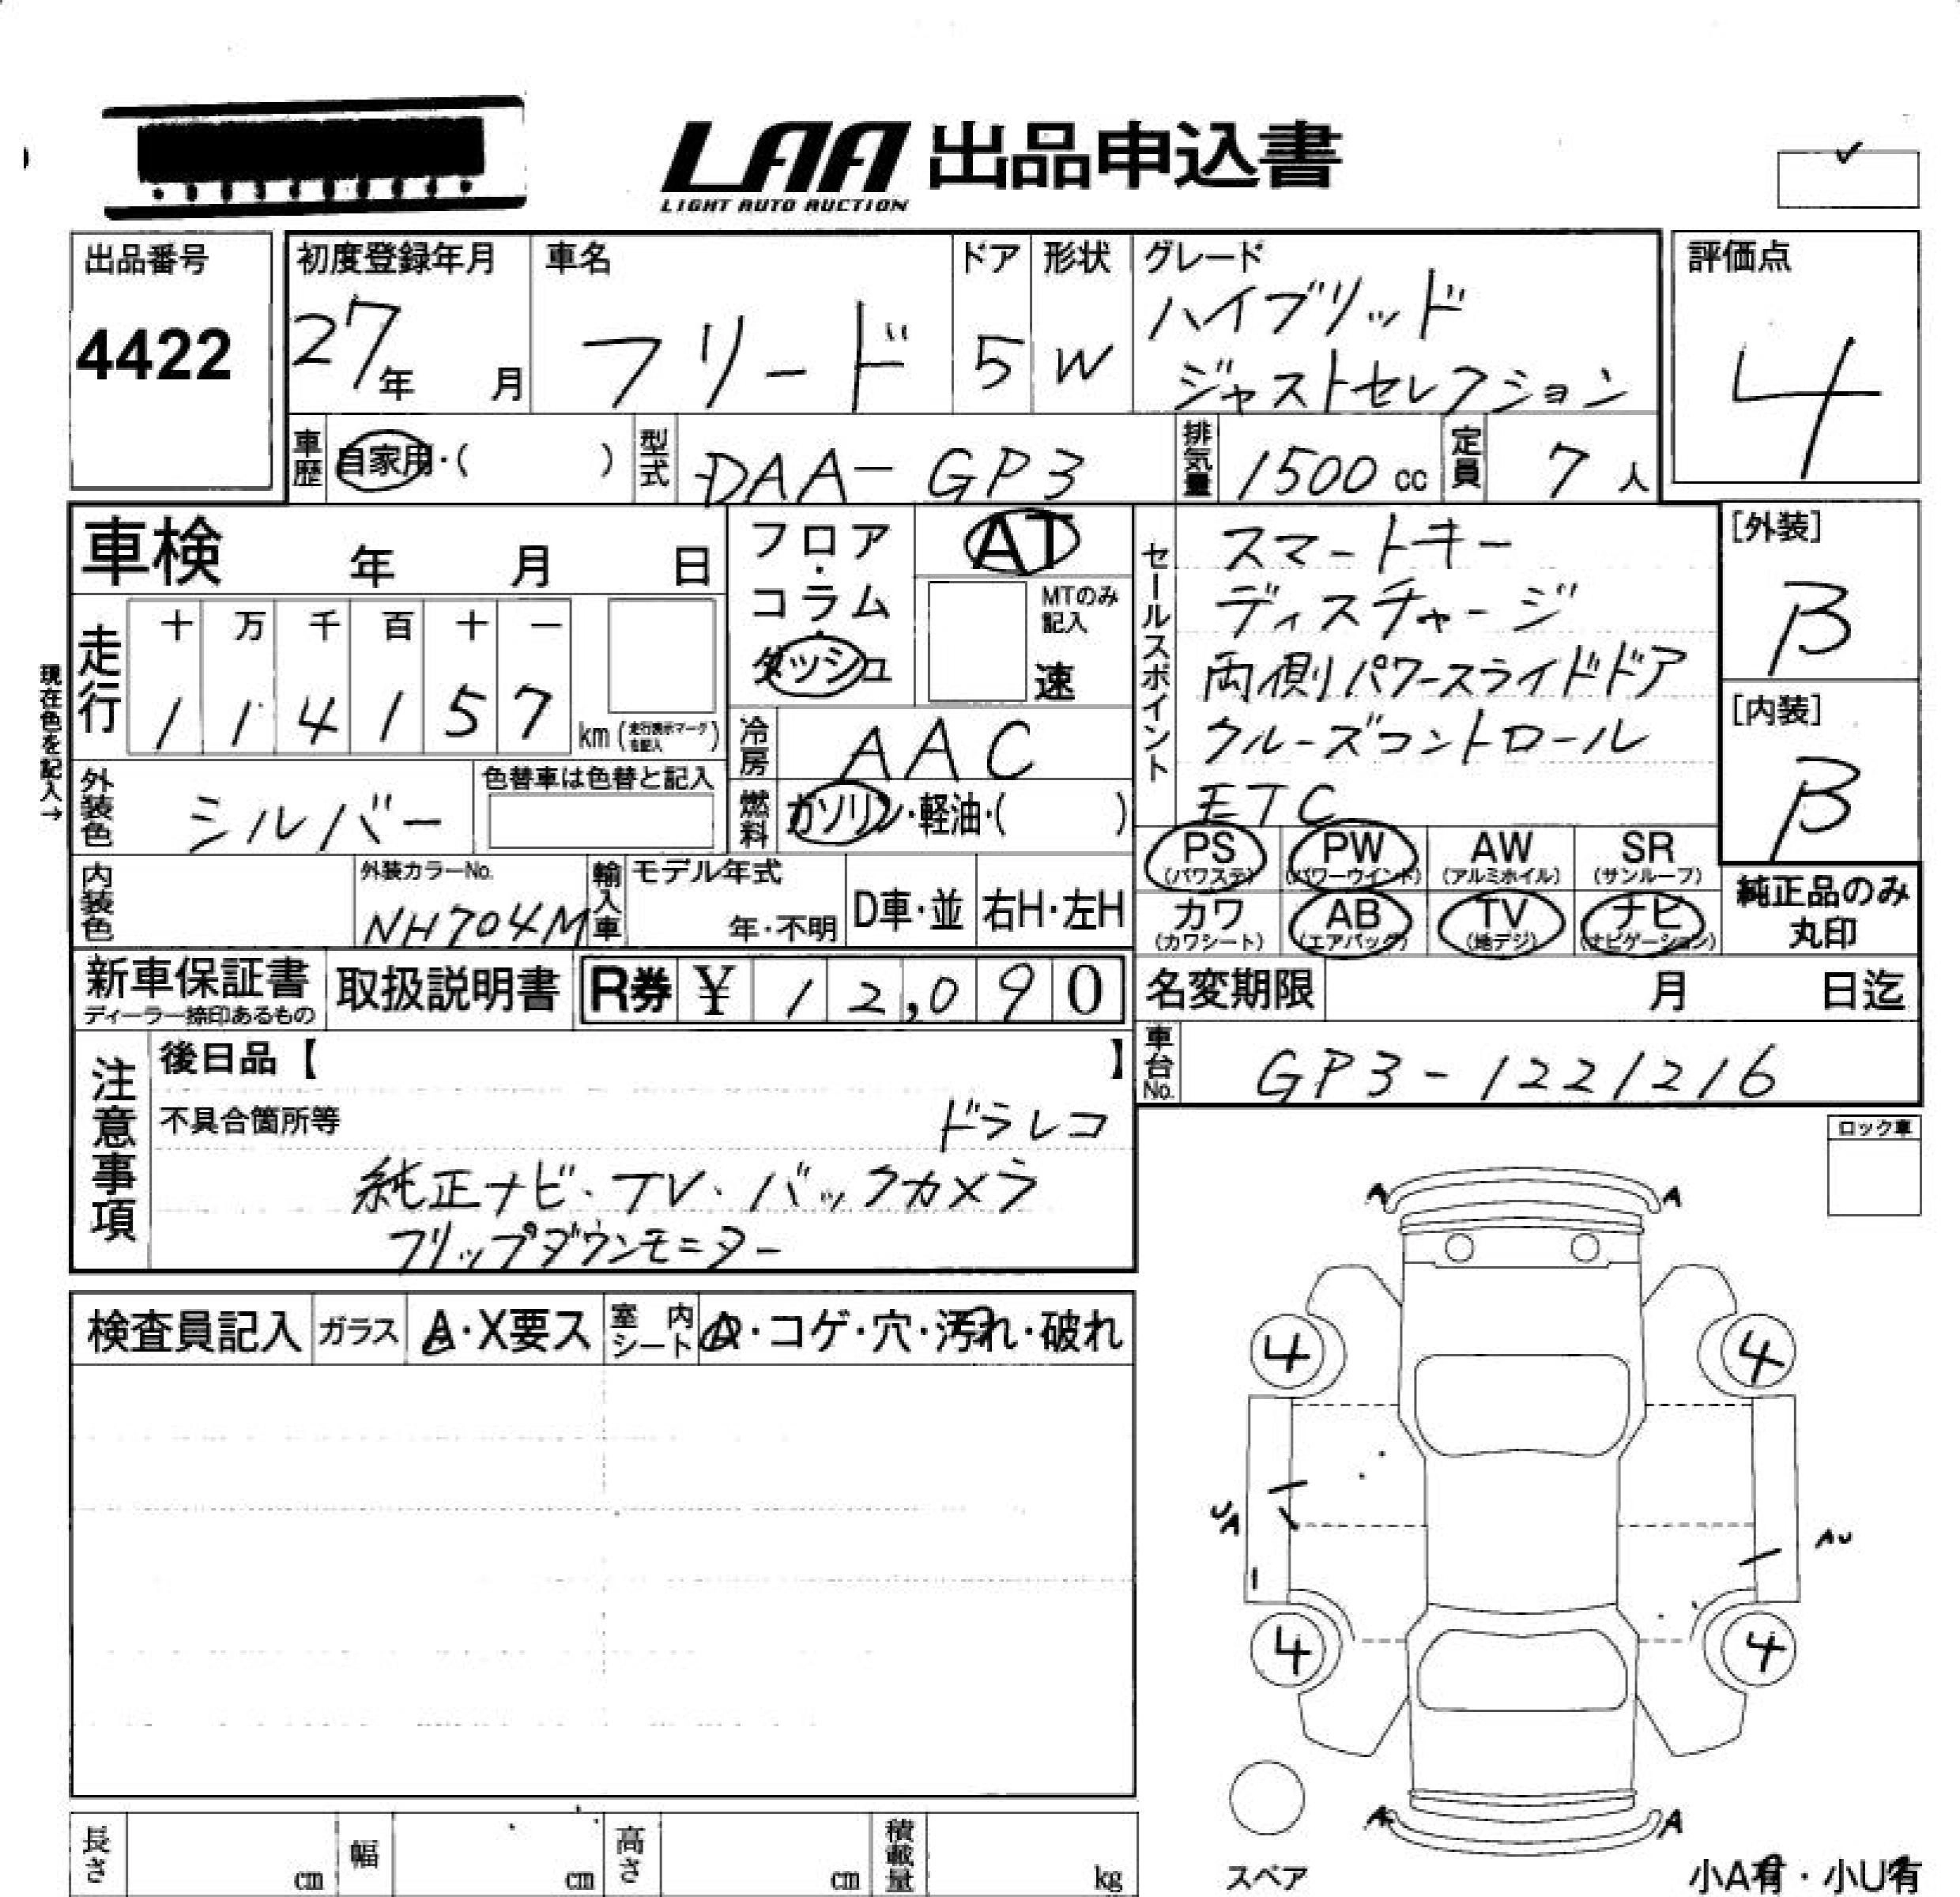 LAA 出品申込書
LIGHT AUTO AUCTION
出品番号
4422
初度登録年月
27年 月
車名
フリード
ドア
5
形状
W
グレード
ハイブリッド
ジャストセレクション
評価点
4
車歴
自家用・( )
型式
DAA-GP3
排気量
1500 cc
定員
7 人
車検 年 月 日
フロア・コラム・ダッシュ
AT
MTのみ記入
速
セールスポイント
スマートキー
ディスチャージ
両側パワースライドドア
クルーズコントロール
ETC
[外装]
B
[内装]
B
現在色を記入→
走行
十 万 千 百 十 一
1 1 4 1 5 7 km (走行表示マークを記入)
冷房
AAC
外装色
シルバー
色替車は色替と記入
燃料
ガソリン・軽油・( )
PS (パワステ)
PW (パワーウインド)
AW (アルミホイル)
SR (サンルーフ)
カワ (カワシート)
AB (エアバッグ)
TV (地デジ)
ナビ (ナビゲーション)
純正品のみ
丸印
内装色
外装カラーNo.
NH704M
輸入車
モデル年式
年・不明
D車・並
右H・左H
新車保証書
ディーラー捺印あるもの
取扱説明書
R券 ¥ 12,090
名変期限 月 日迄
車台No.
GP3-1221216
注意事項
後日品【 】
不具合箇所等
ドラレコ
純正ナビ・TV・バックカメラ
フリップダウンモニター
ロック車
検査員記入
ガラス
A・X要ス
室内シート
A・コゲ・穴・汚れ・破れ
A A
4 4
UA
AU
4 4
A A
スペア
小A有・小U有
長さ cm
幅 cm
高さ cm
積載量 kg